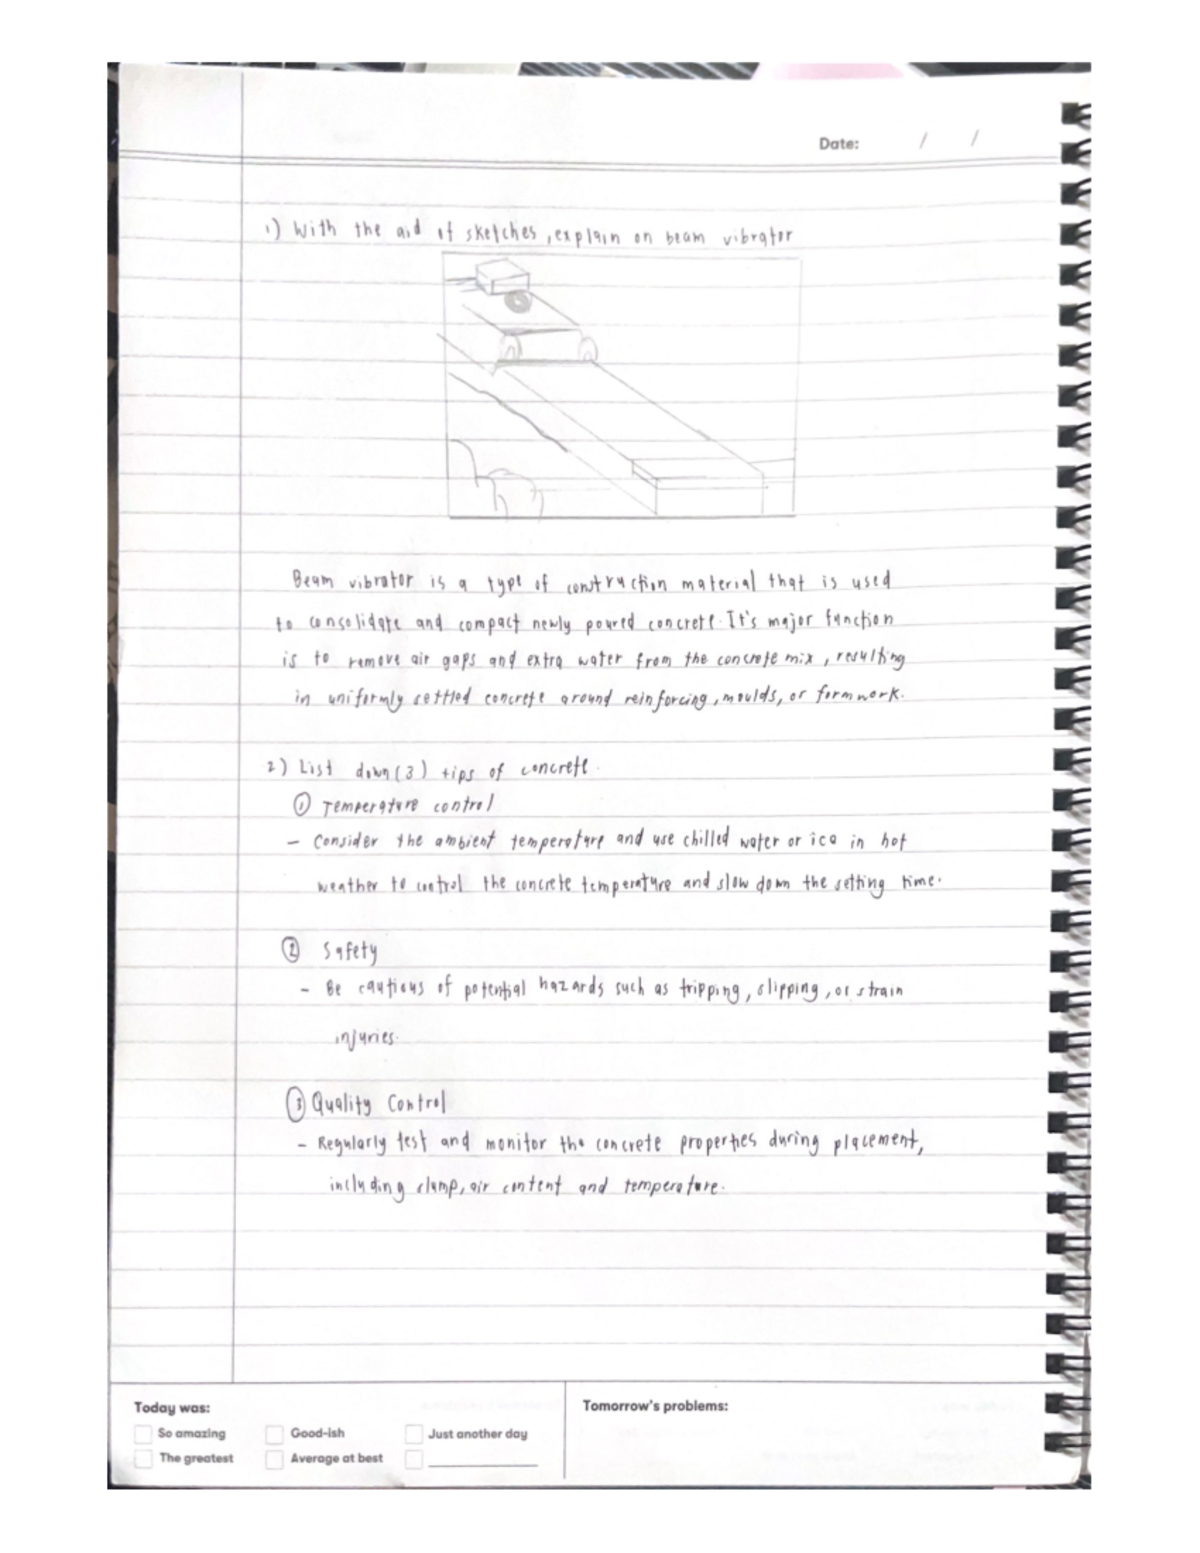 Date: / /
1) With the aid of sketches, explain on beam vibrator
Beam vibrator is a type of construction material that is used
to consolidate and compact newly poured concrete. It's major function
is to remove air gaps and extra water from the concrete mix, resulting
in uniformly settled concrete around reinforcing, moulds, or formwork.
2) List down (3) tips of concrete.
① Temperature control
- Consider the ambient temperature and use chilled water or ice in hot
weather to control the concrete temperature and slow down the setting time.
② Safety
- Be cautious of potential hazards such as tripping, slipping, or strain
injuries.
③ Quality Control
- Regularly test and monitor the concrete properties during placement,
including slump, air content and temperature.
Today was:
So amazing Good-ish Just another day
The greatest Average at best
Tomorrow's problems: